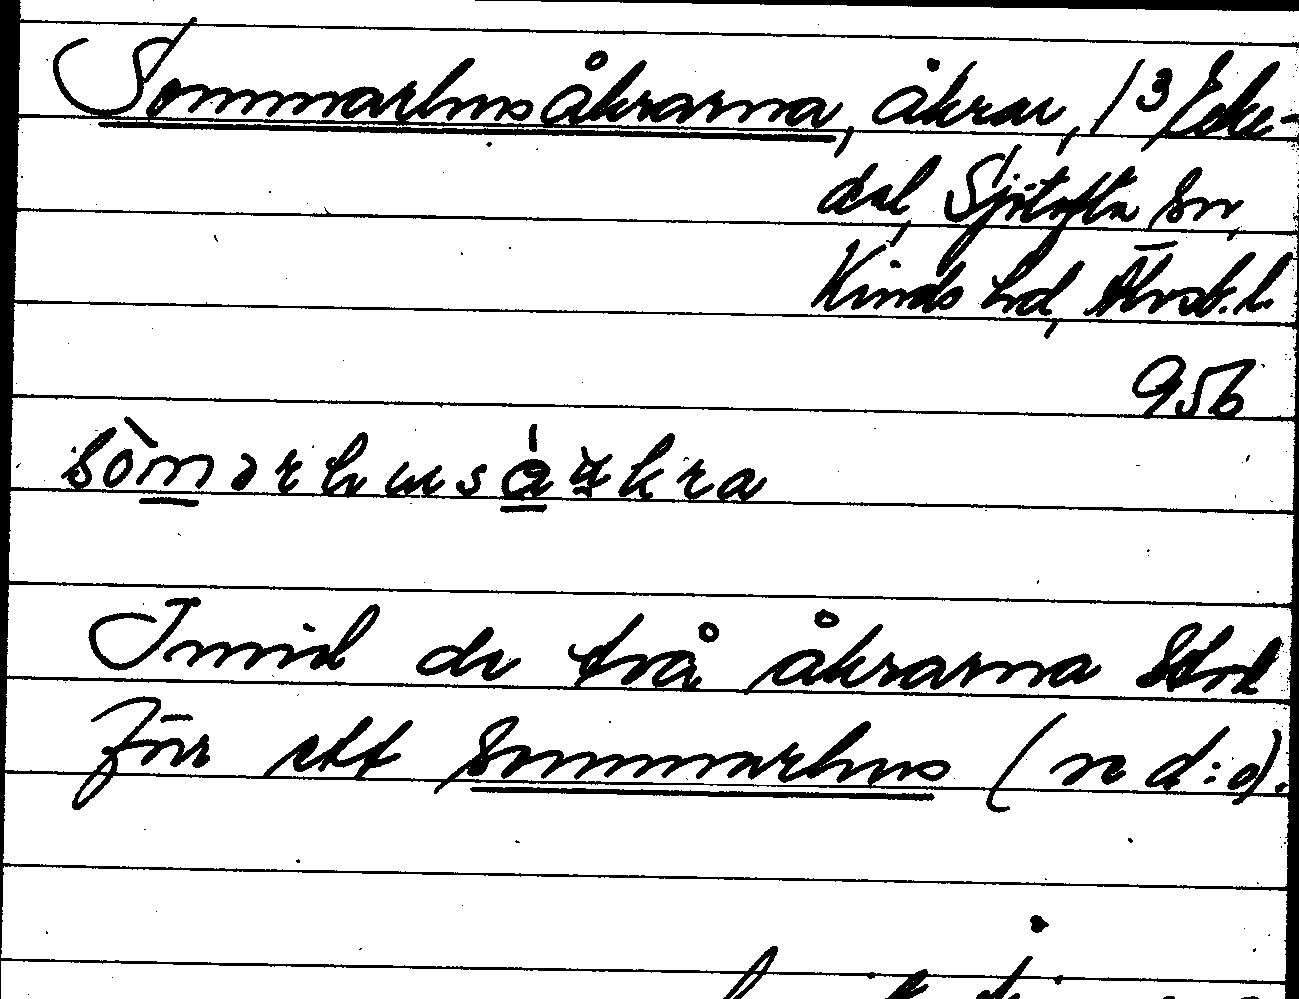 Sommarhusåkrarna, åkrar, 1³ Eke-
dal, Sjötofta sn,
Kinds hd, Älvsb. l.
956
sòmarhusàkra
Invid de två åkrarna stod
förr ett sommarhus (se d:o).